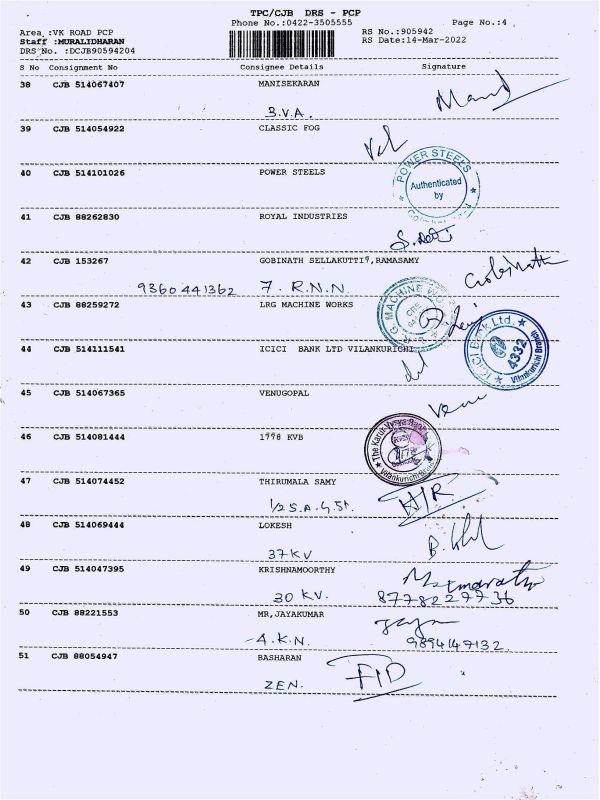 TPC/CJB DRS - PCP
Phone No.:0422-3505555 Page No.:4
Area :VK ROAD PCP RS No.:905942
Staff :MURALIDHARAN RS Date:14-Mar-2022
DRS No. :DCJB90594204
S No Consignment No Consignee Details Signature
38 CJB 514067407 MANISEKARAN
3.V.A.
39 CJB 514054922 CLASSIC FOG
40 CJB 514101026 POWER STEELS
POWER STEELS
Authenticated
by
41 CJB 88262830 ROYAL INDUSTRIES
42 CJB 153267 GOBINATH SELLAKUTTI9,RAMASAMY
9360441362 7. R.N.N. Gobinath
43 CJB 88259272 LRG MACHINE WORKS
44 CJB 514111541 ICICI BANK LTD VILANKURICHI
ICICI Bank Ltd.
4332
Vilankurichi Branch
45 CJB 514067365 VENUGOPAL
46 CJB 514081444 1778 KVB
The Karur Vysya Bank
47 CJB 514074452 THIRUMALA SAMY
1/2 S.A.G.St. H/R.
48 CJB 514069444 LOKESH
37 KV
49 CJB 514047395 KRISHNAMOORTHY
30 KV. 8778227736
50 CJB 88221553 MR,JAYAKUMAR
-4.K.N. 9894147132.
51 CJB 88054947 BASHARAN
ZEN. FID